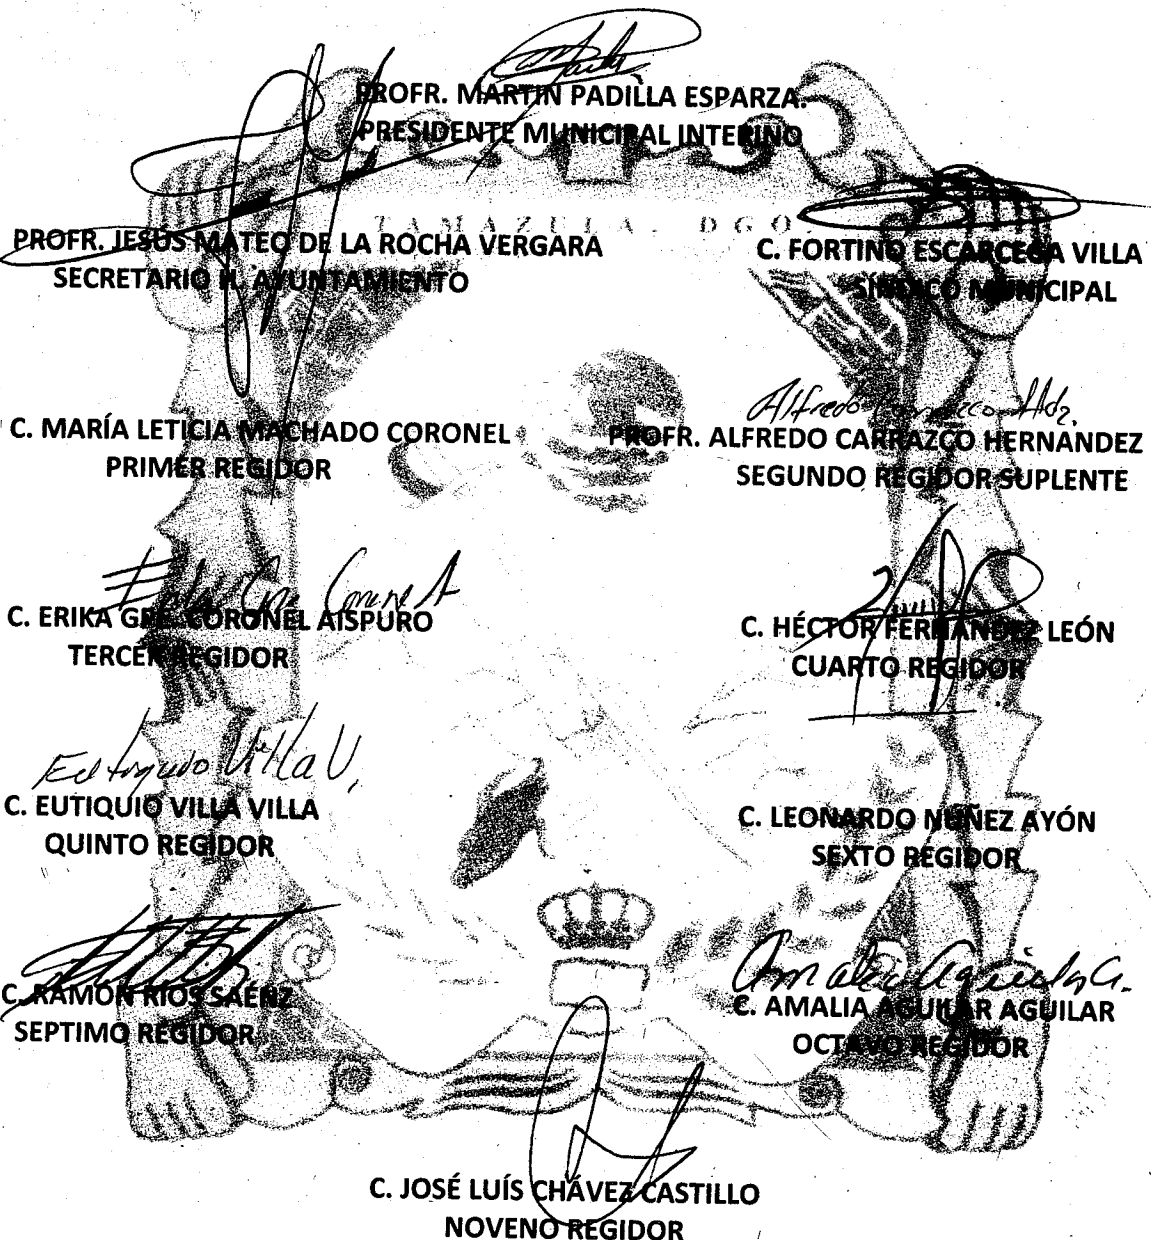 PROFR. MARTIN PADILLA ESPARZA.
PRESIDENTE MUNICIPAL INTERINO
TAMAZULA, DGO.
PROFR. JESÚS MATEO DE LA ROCHA VERGARA
SECRETARIO H. AYUNTAMIENTO
C. FORTINO ESCARCEGA VILLA
SÍNDICO MUNICIPAL
C. MARÍA LETICIA MACHADO CORONEL
PRIMER REGIDOR
Alfredo Carrazco Hdz.
PROFR. ALFREDO CARRAZCO HERNÁNDEZ
SEGUNDO REGIDOR SUPLENTE
Erika Gpe Coronel A
C. ERIKA GPE. CORONEL AISPURO
TERCER REGIDOR
C. HÉCTOR FERNÁNDEZ LEÓN
CUARTO REGIDOR
Villa V.
C. EUTIQUIO VILLA VILLA
QUINTO REGIDOR
C. LEONARDO NÚÑEZ AYÓN
SEXTO REGIDOR
C. RAMÓN RIOS SAENZ
SEPTIMO REGIDOR
Amalia Aguilar A.
C. AMALIA AGUILAR AGUILAR
OCTAVO REGIDOR
C. JOSÉ LUÍS CHÁVEZ CASTILLO
NOVENO REGIDOR